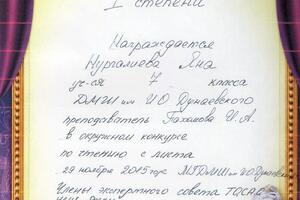 I степени
Награждается
Нургалиева Яна
уч-ся 7 класса
ДМШ им ИО Дунаевского
преподаватель Пахомова И.А.
в окружном конкурсе
по чтению с листа
29 ноября 2015 года МГДМШ им ИО Дунаевского
Члены экспертного совета